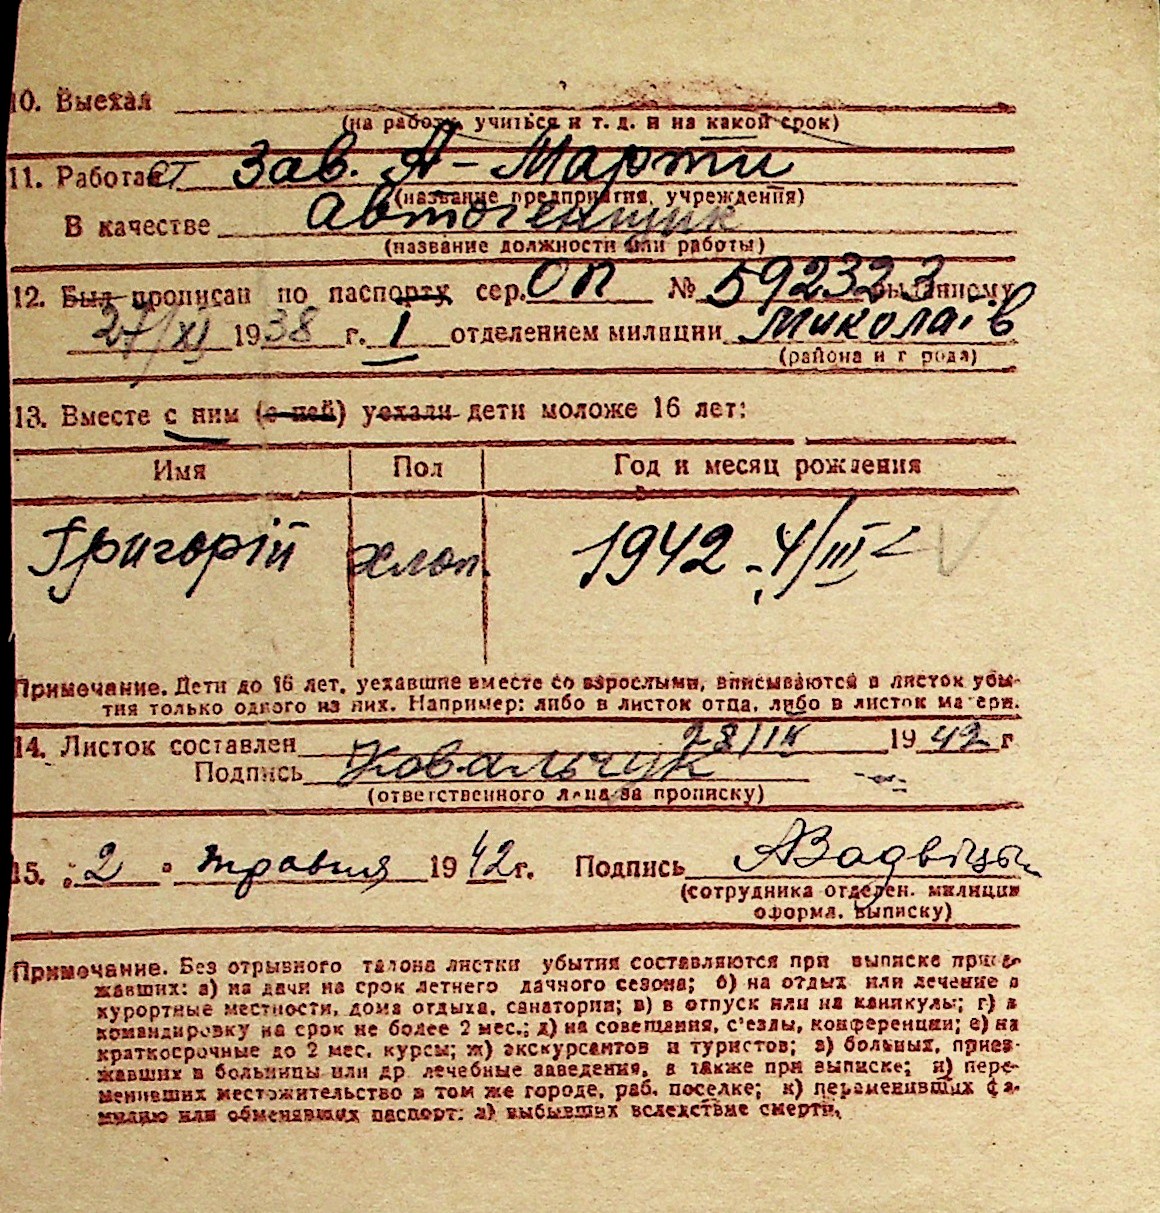 10. Выехал
(на работу, учиться и т. д. и на какой срок)
11. Работает Зав. А-Марти
(название предприятия, учреждения)
В качестве автогенщик
(название должности или работы)
12. Был прописан по паспорту сер. ОП № 592323 выданному
27/XI 1938 г. 1 отделением милиции Миколаів
(района и г рода)
13. Вместе с ним (с ней) уехали дети моложе 16 лет:
Имя Пол Год и месяц рождения
Григорій хлоп. 1942 4/III
Примечание. Дети до 16 лет, уехавшие вместе со взрослыми, вписываются в листок убы-
тия только одного из них. Например: либо в листок отца, либо в листок матери.
14. Листок составлен 28/IV 1942 г
Подпись Ковальчук
(ответственного лица за прописку)
15. „2" травня 1942 г. Подпись
(сотрудника отделен. милиции
оформл. выписку)
Примечание. Без отрывного талона листки убытия составляются при выписке приез-
жавших: а) на дачи на срок летнего дачного сезона; б) на отдых или лечение в
курортные местности, дома отдыха, санатории; в) в отпуск или на каникулы; г) в
командировку на срок не более 2 мес.; д) на совещания, с'езды, конференции; е) на
краткосрочные до 2 мес. курсы; ж) экскурсантов и туристов; з) больных, приез-
жавших в больницы или др. лечебные заведения, а также при выписке; и) пере-
менивших местожительство в том же городе, раб. поселке; к) переменивших фа-
милию или обменявших паспорт; л) выбывших вследствие смерти.